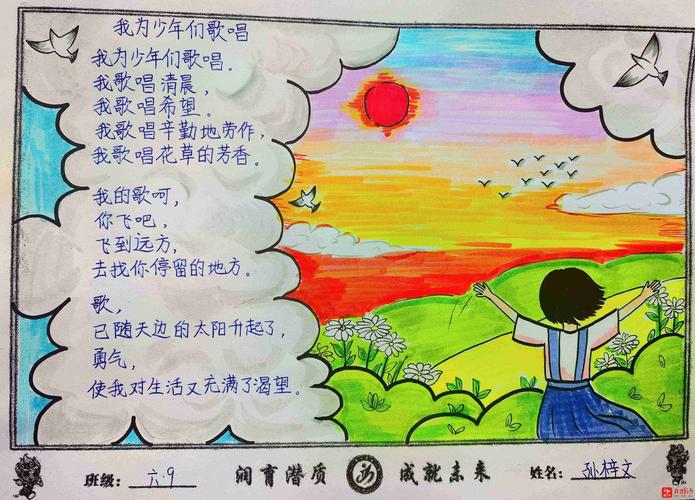 我为少年们歌唱
我为少年们歌唱。
我歌唱清晨，
我歌唱希望。
我歌唱辛勤地劳作，
我歌唱花草的芳香。
我的歌呵，
你飞吧，
飞到远方，
去找你停留的地方。
歌，
已随天边的太阳升起了，
勇气，
使我对生活又充满了渴望。
班级：六.9 润育潜质 成就未来 姓名：孙梓文